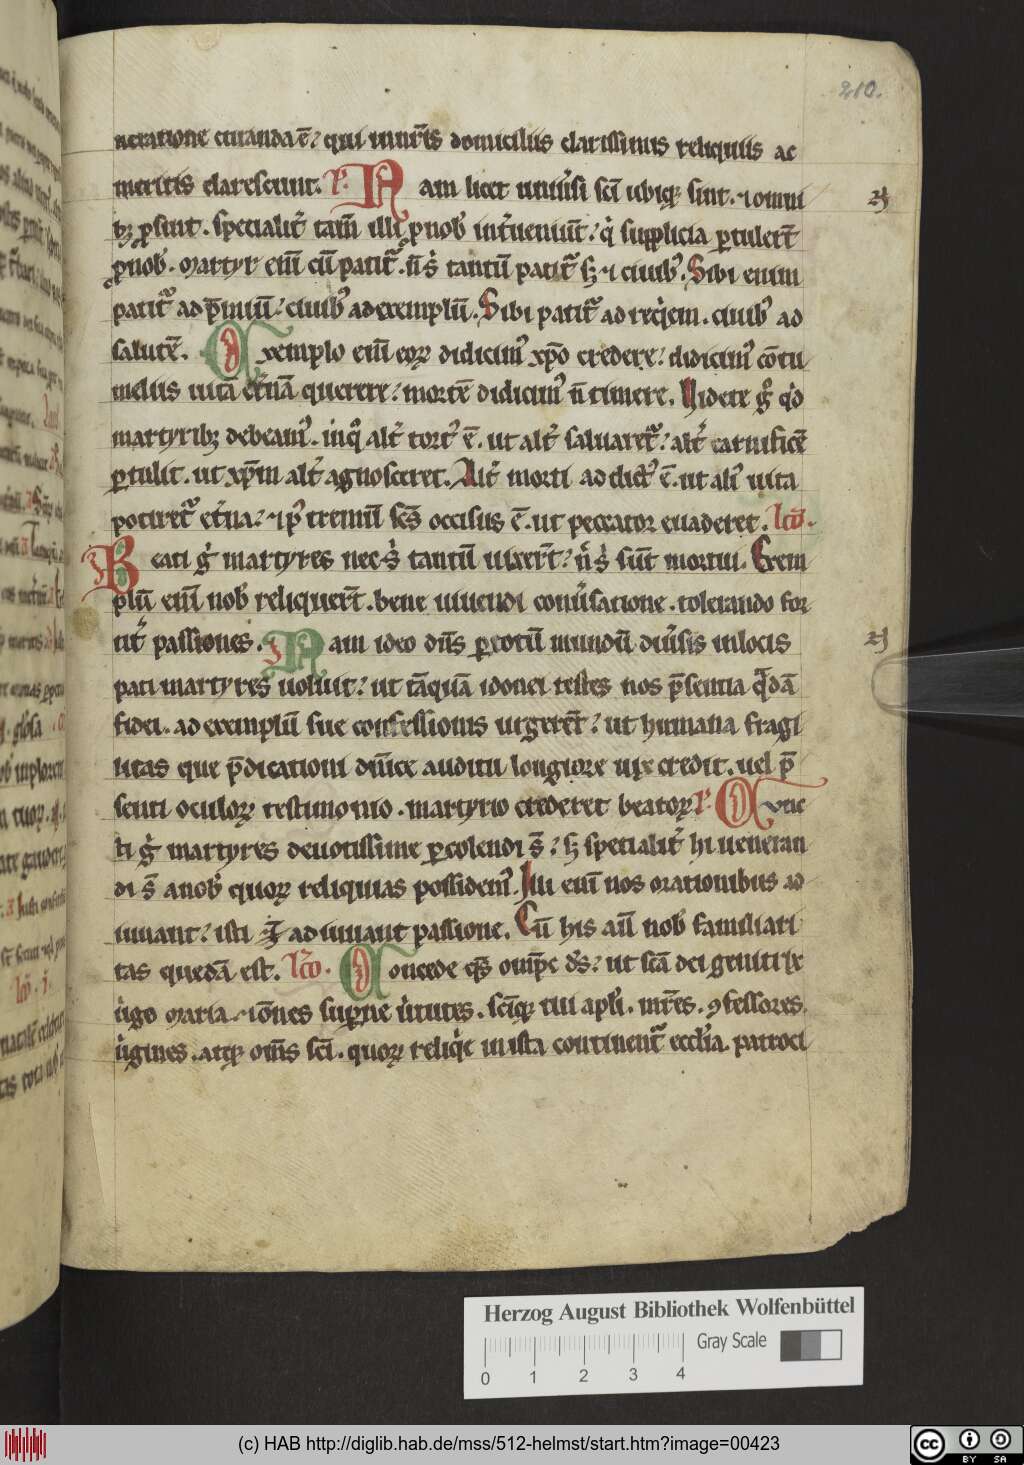 210.
neratione ciuanda ē? qui nur̄is domiciliis clarissimis reliquiis ac
meritis clarescunt. P. Nam licet uniu̾si sc̄i ubiqꝫ sint. ⁊ omni
bꝫ ꝓsint. specialit̾ tam̄ illi ꝓ nob̾ int̾ueniūt? q̇ supplicia ꝑtuler̄t
ꝓ nob̾. Martyr eni̅ cū patit᷑. n̄ s̾ tantū patit᷑ sꝫ ⁊ ciuibꝰ. Sibi enim
patit᷑ ad p̄miū? ciuibꝰ ad exemplū. Sibi patit᷑ ad req̇em. ciuibꝰ ad
salutē. Exemplo eni̅ eoꝝ didicimꝰ xp̄o credere? didicimꝰ cōtu
meliis uitā et̾nā querere? mortē didicimꝰ n̄ timere. Videte g̊ qd̾
martyribꝫ debeamꝰ. in q̊ alt̾ tort᷒ ē. ut alt̾ saluaret᷑? alt̾ carnificē
ꝑtulit. ut xp̄m alt̾ agnosceret. Alt̾ morti addictꝰ ē. ut ali᷒ uita
potiret᷑ et̾na? ⁊ p᷒tremū sc̄s occisus ē. ut peccator euaderet. lc̄o.
Beati g̊ martyres nec s̾ tantū uixer̄t? n̄ s̾ sūt mortui. Exem
plū eni̅ nob̾ reliquer̄t. bene uiuendi conu̾satione. tolerando for
tit̾ passiones. Nam ideo dn̄s ꝑ totū mundū diu̾sis in locis
pati martyres uoluit? ut tāquā idonei testes nos p̄sentia q̄dā
fidei. ad exemplū sue confessionis urgerēt? ut humana fragi
litas que p̄dicationi dn̄ice auditu longiore uix credit. uel p̄
senti oculoꝝ testimonio. martyrio crederet beatoꝝ P. Cunc
ti g̊ martyres deuotissime ꝑcolendi s̄? sꝫ specialit̾ hi ueneran
di s̄ a nob̾ quoꝝ reliquias possidemꝰ. Illi eni̅ nos orationibus ad
iuuant? isti ⁊ adiuuant passione. Cū his aūt nob̾ familiari
tas quedā est. lc̄o. Concede q̄s om̄pc̄ ds̄? ut sc̄a dei genitrix
u̾go maria. ⁊ om̄es sup̄ne u̾tutes. sc̄iqꝫ tui apl̾i. mr̄es. ꝯfessores.
u̾gines. atqꝫ om̄s sc̄i. quoꝝ reliq̇e in ista continent᷑ eccl̾ia. patroci
Herzog August Bibliothek Wolfenbüttel
Gray Scale
0 1 2 3 4
(c) HAB http://diglib.hab.de/mss/512-helmst/start.htm?image=00423
cc BY SA